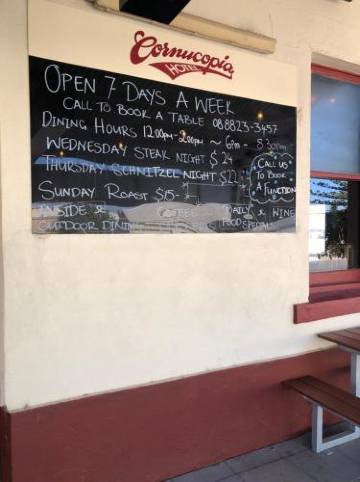 Cornucopia
HOTEL
OPEN 7 DAYS A WEEK
CALL TO BOOK A TABLE 088823-3457
DINING HOURS 12.00pm-2.00pm ~ 6pm - 8.30pm
WEDNESDAY STEAK NIGHT $24
THURSDAY SCHNITZEL NIGHT $22
CALL US
TO BOOK
A FUNCTION
SUNDAY ROAST $15-
INSIDE & COFFEE DAILY & WINE
OUTDOOR DINING FOOD SPECIALS